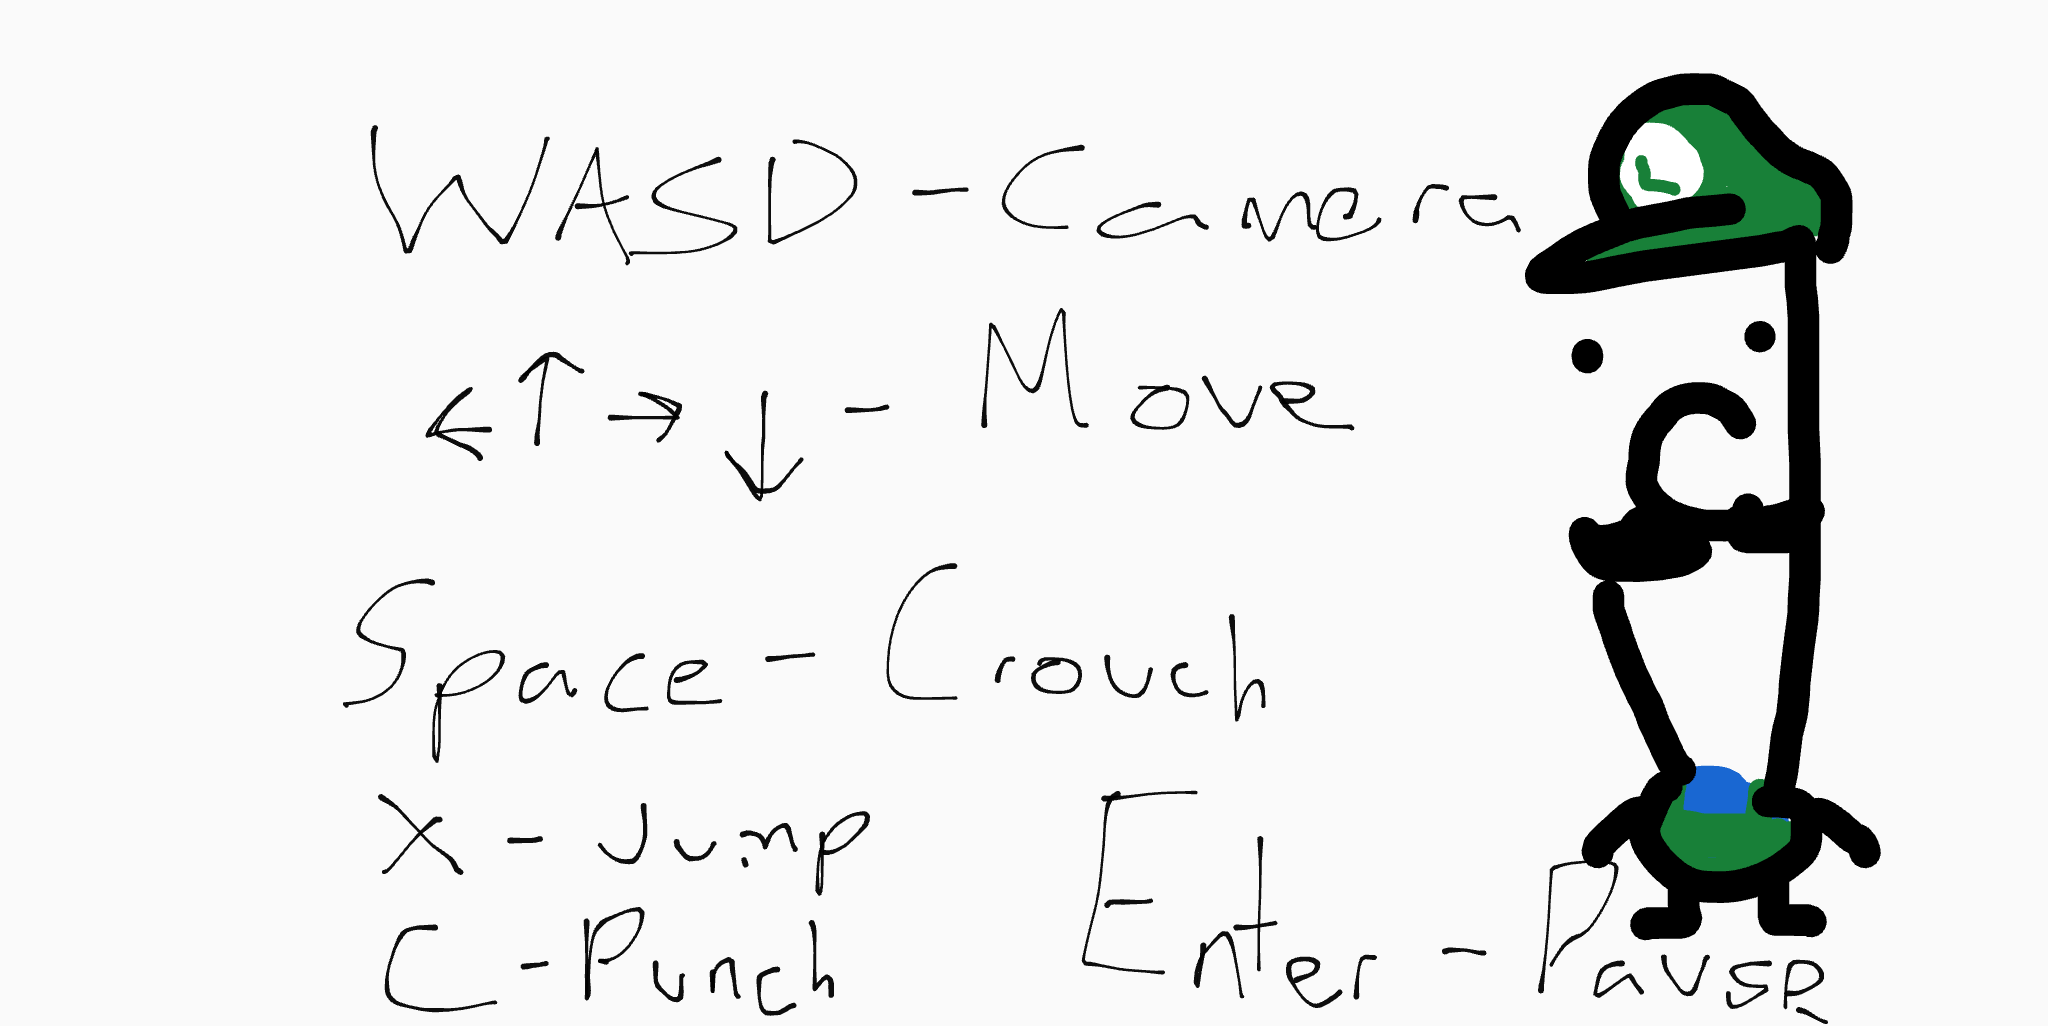 WASD - Camera
L
← ↑ → ↓ - Move
Space - Crouch
X - Jump
C - Punch
Enter - Pause